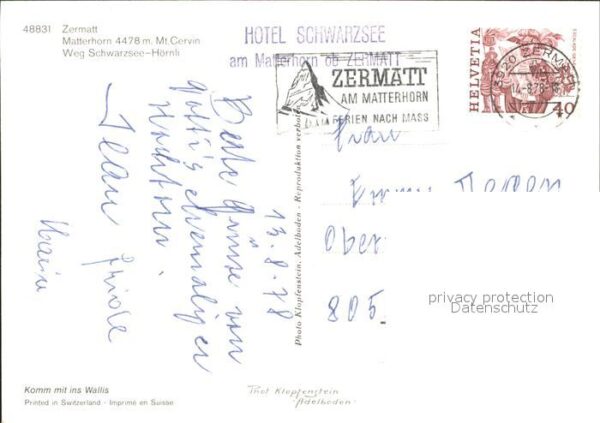 48831 Zermatt
Matterhorn 4478 m. Mt. Cervin
Weg Schwarzsee-Hörnli
HOTEL SCHWARZSEE
am Matterhorn ob ZERMATT
ZERMATT
AM MATTERHORN
FERIEN NACH MASS
HELVETIA
3920 ZERMATT
14-8.78
40
13. 8. 78
Beste Grüsse von
ehemaliger
Jean
Photo Klopfenstein, Adelboden - Reproduktion verboten
Frau
Ober
805
privacy protection
Datenschutz
Komm mit ins Wallis
Printed in Switzerland - Imprimé en Suisse
Phot Klopfenstein
Adelboden